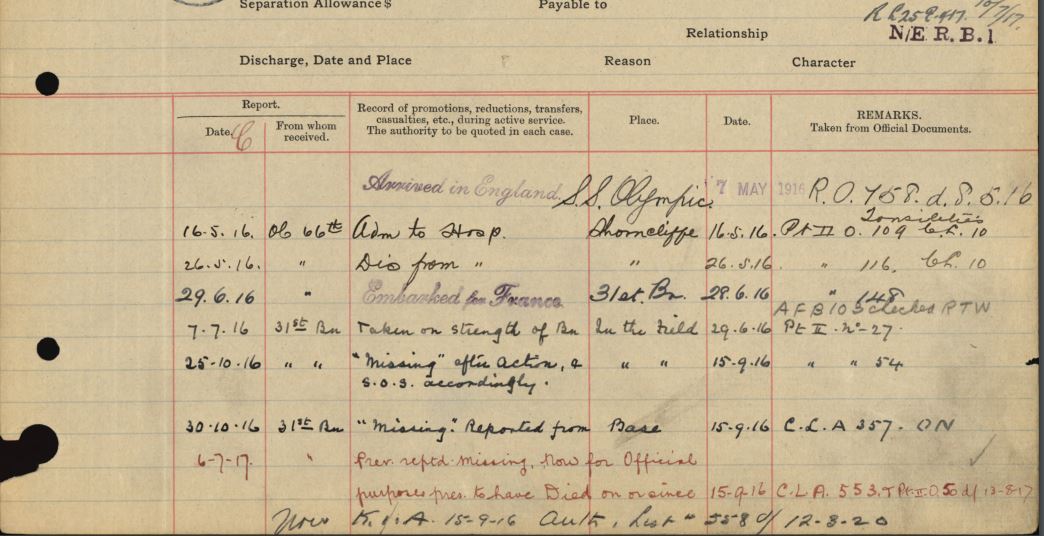 Separation Allowance $ Payable to
R L 25 10/7/17.
Relationship N/E R. B. 1
Discharge, Date and Place Reason Character
Report. Record of promotions, reductions, transfers, casualties, etc., during active service. The authority to be quoted in each case. Place. Date. REMARKS. Taken from Official Documents.
Date. C From whom received.
Arrived in England. S.S. Olympic. 7 MAY 1916 R.O. 758. d. 8.5.16
Tonsilitis
16.5.16. OC 66th Adm to Hosp. Shorncliffe 16.5.16. Pt II O. 109 Ch. 10
26.5.16. " Dis from " " 26.5.16 " 116. Ch. 10
29.6.16 " Embarked for France 31st. Bn. 28.6.16 " 148
AFB103 checked RTW
7.7.16 31st Bn Taken on strength of Bn In the Field 29.6.16 Pt II. No 27.
25.10.16 " " "Missing" after action, & " " 15.9.16 " " 54
S.O.S. accordingly.
30.10.16 31st Bn "Missing". Reported from Base 15.9.16 C.L.A 357. ON
6-7-17. " Prev. reptd. missing, Now for Official
purposes pres. to have Died on or since 15-9-16 C.L.A. 553. Pt. II. O. 50 d/ 13-8-17
Now K. in A. 15-9-16 Auth, List " 558 d/ 12-8-20